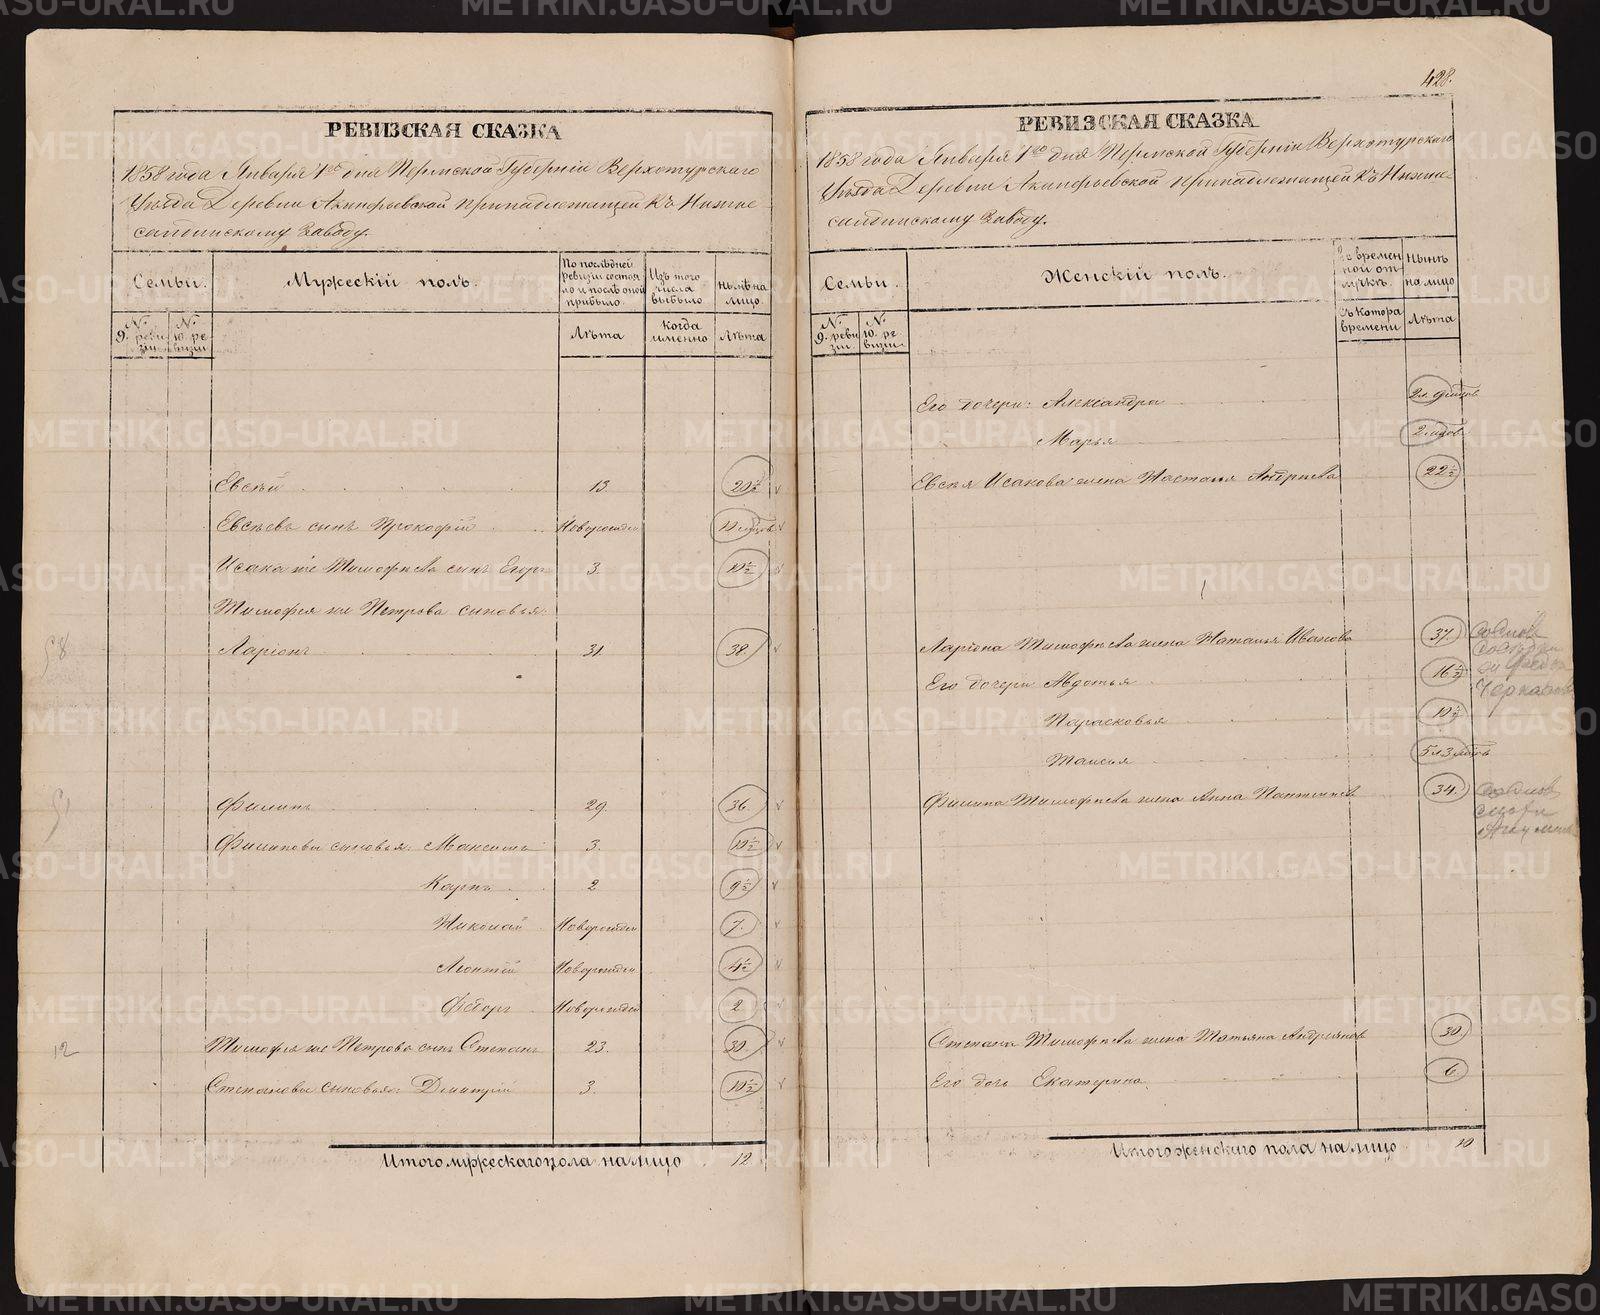 428.
РЕВИЗСКАЯ СКАЗКА
1858 года Января 1го дня Пермской Губерніи Верхотурскаго
Уѣзда Деревни Акинфьевской принадлежащей къ Нижне
салдинскому Заводу.
Семьи.
Мужескій полъ.
По послѣдней
ревизіи состоя
ло и послѣ оной
прибыло.
Изъ того
числа
выбыло
Нынѣ на
лицо.
N.
9. реви
зіи.
N.
10. ре
визіи
Лѣта
Когда
именно
Лѣта
Евсѣй 13. 20½
Евсѣевъ сынъ Прокофій Новорожден
Исака же Тимофѣева сынъ Егоръ 3. 10½
Тимофея же Петрова сыновья:
Ларіонъ 31. 38.
Филипъ 29. 36.
Филиповы сыновья: Максимъ 3. 10½
Карпъ 2 9½
Николай Новорожден 7.
Леонтій Новорожден 4½
Федоръ Новорожден 2
Тимофея же Петрова сынъ Степанъ 23. 30.
Степановы сыновья: Дмитрій 3. 10½
12
Итого мужескаго пола на лицо 12.
РЕВИЗСКАЯ СКАЗКА
1858 года Января 1го дня Пермской Губерніи Верхотурскаго
Уѣзда Деревни Акинфьевской принадлежащей къ Нижне-
салдинскому Заводу.
Семьи.
Женскій полъ.
Во времен
ной от
лучкѣ.
Нынѣ
на лицо
N.
9. реви
зіи.
N.
10. ре
визіи.
Съ котора
времени
Лѣта
Его дочери: Александра
Марья
Евсѣя Исакова жена Настасья Андреева 22½
Ларіона Тимофѣева жена Наталья Иванова 37.
Его дочери Авдотья 16½
Парасковья 10½
Таисья
Филипа Тимофѣева жена Анна 34.
Степана Тимофѣева жена Татьяна Андреянова 30.
Его дочь Екатерина. 6.
Итого женскаго пола на лицо 10
METRIKI.GASO-URAL.RU